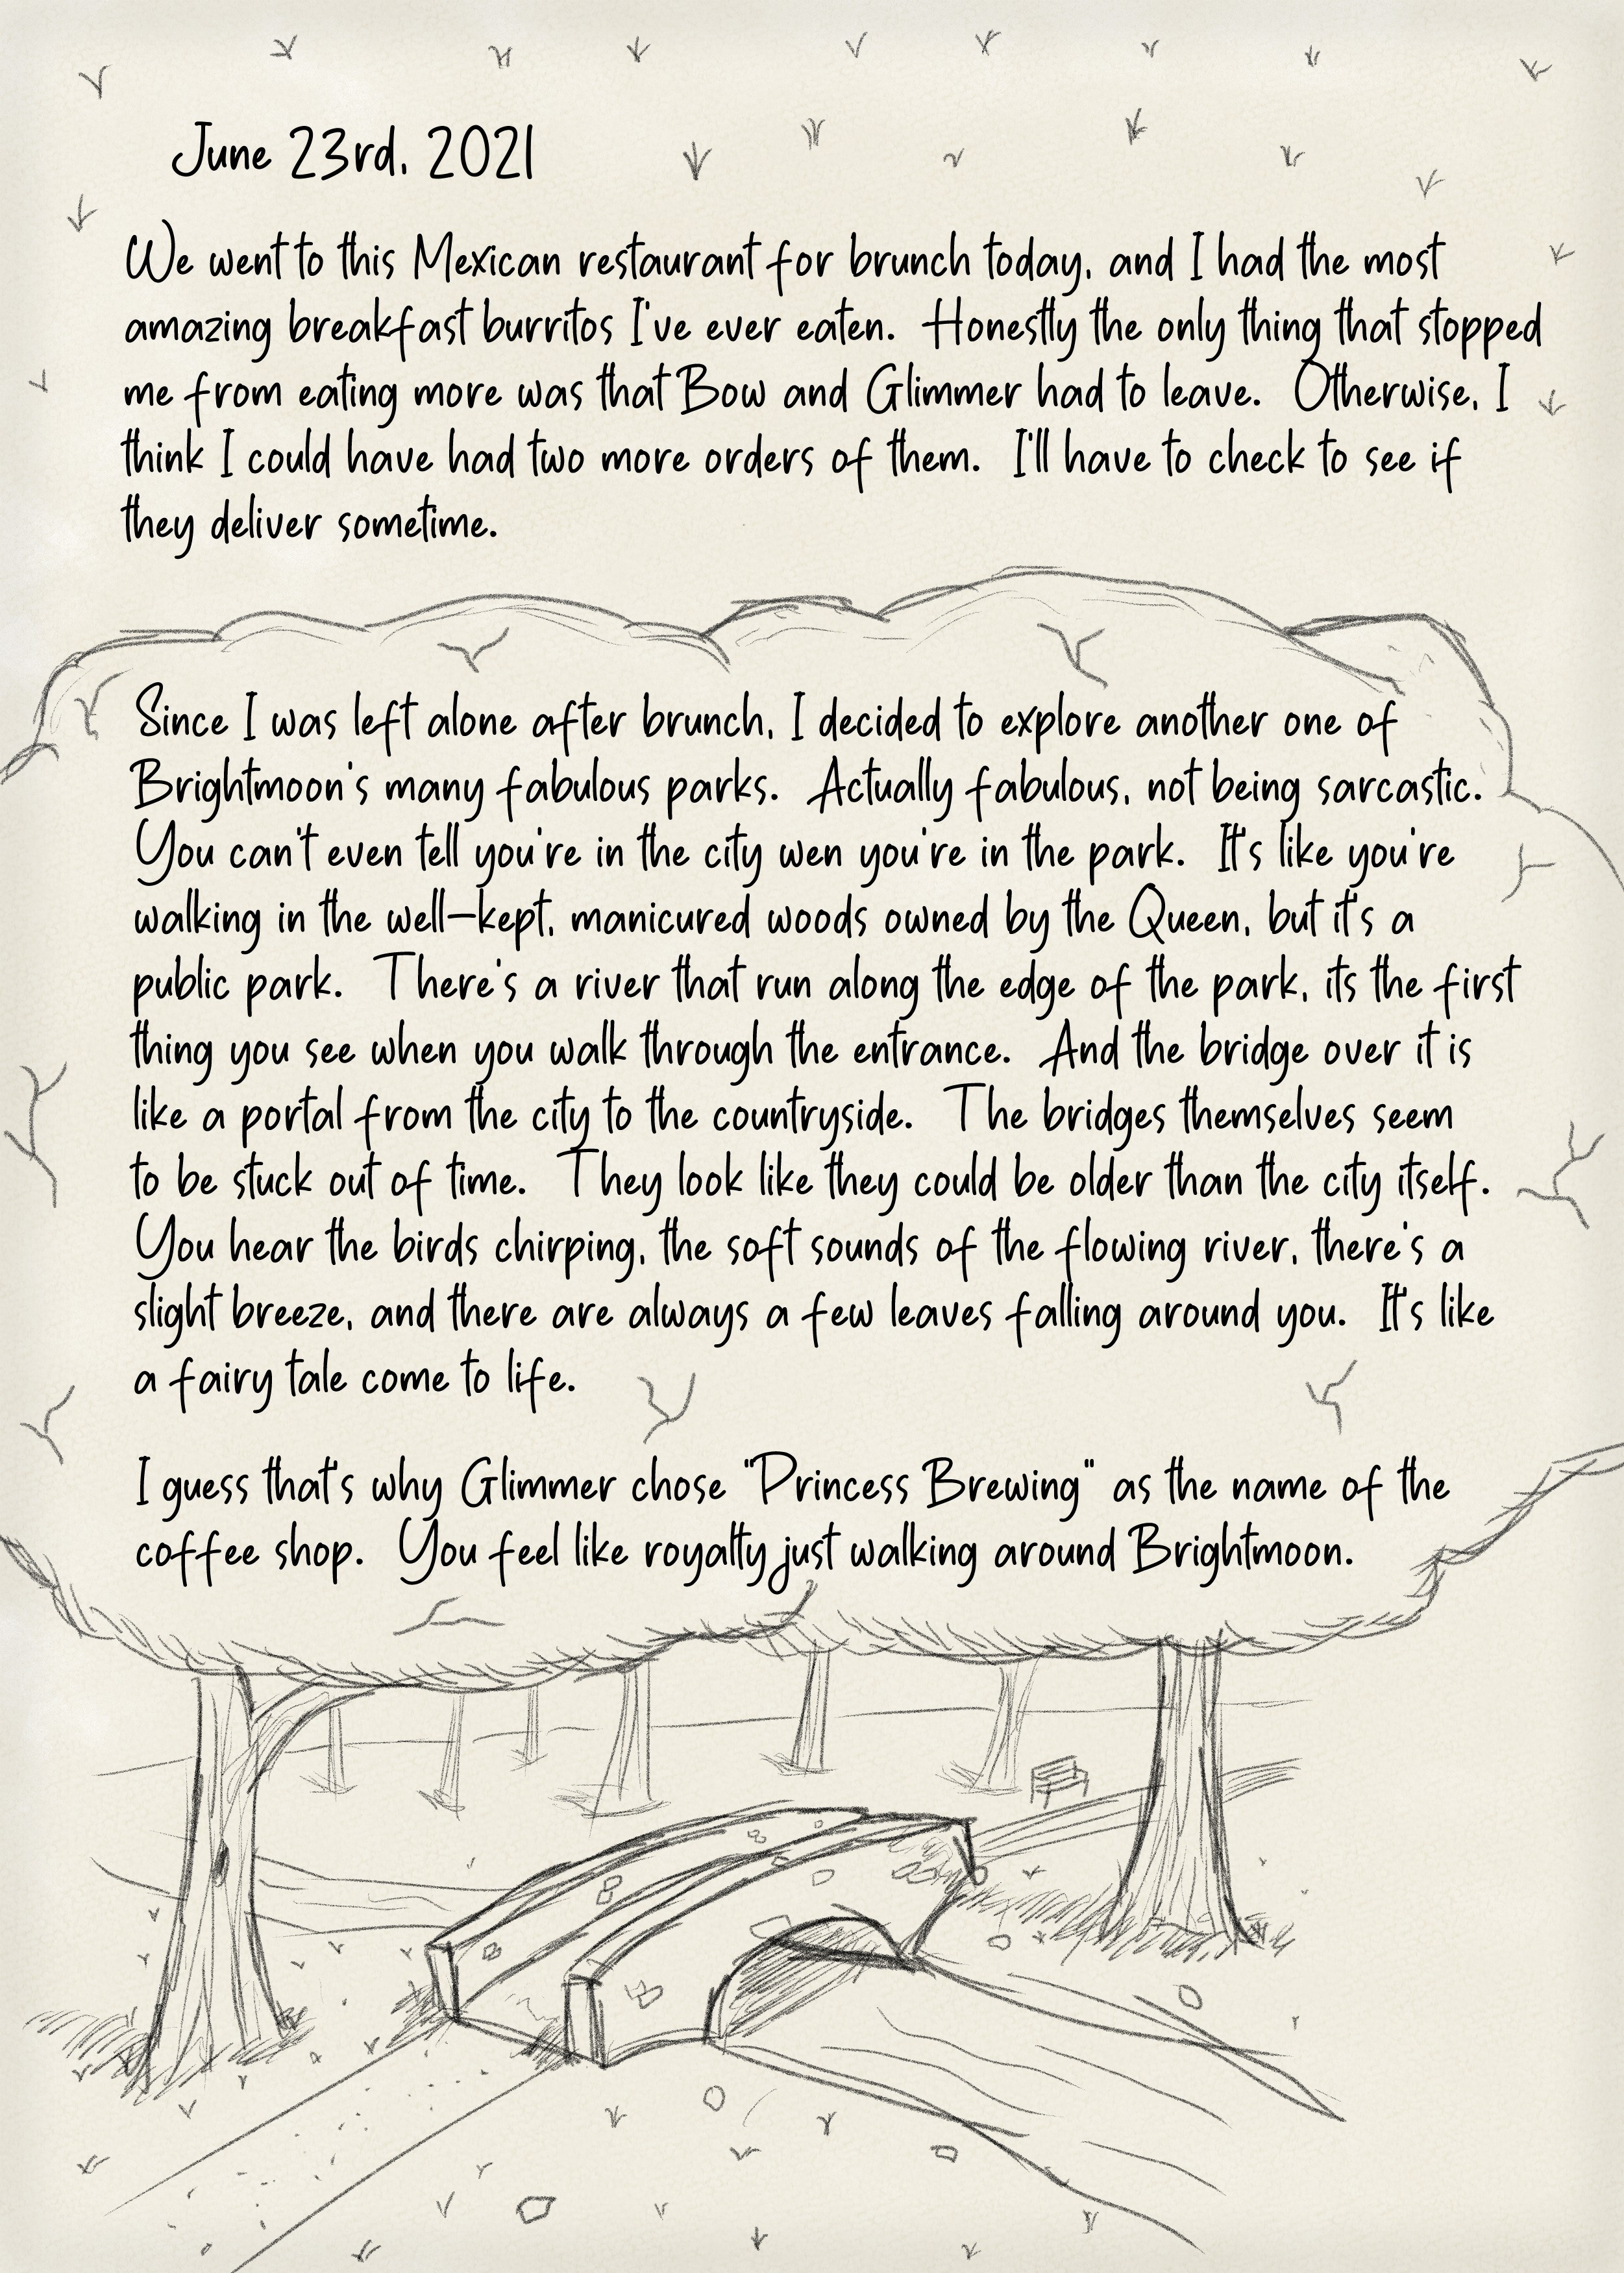 June 23rd, 2021
We went to this Mexican restaurant for brunch today, and I had the most
amazing breakfast burritos I've ever eaten. Honestly the only thing that stopped
me from eating more was that Bow and Glimmer had to leave. Otherwise, I
think I could have had two more orders of them. I'll have to check to see if
they deliver sometime.
Since I was left alone after brunch, I decided to explore another one of
Brightmoon's many fabulous parks. Actually fabulous, not being sarcastic.
You can't even tell you're in the city wen you're in the park. It's like you're
walking in the well-kept, manicured woods owned by the Queen, but it's a
public park. There's a river that run along the edge of the park, its the first
thing you see when you walk through the entrance. And the bridge over it is
like a portal from the city to the countryside. The bridges themselves seem
to be stuck out of time. They look like they could be older than the city itself.
You hear the birds chirping, the soft sounds of the flowing river, there's a
slight breeze, and there are always a few leaves falling around you. It's like
a fairy tale come to life.
I guess that's why Glimmer chose "Princess Brewing" as the name of the
coffee shop. You feel like royalty just walking around Brightmoon.